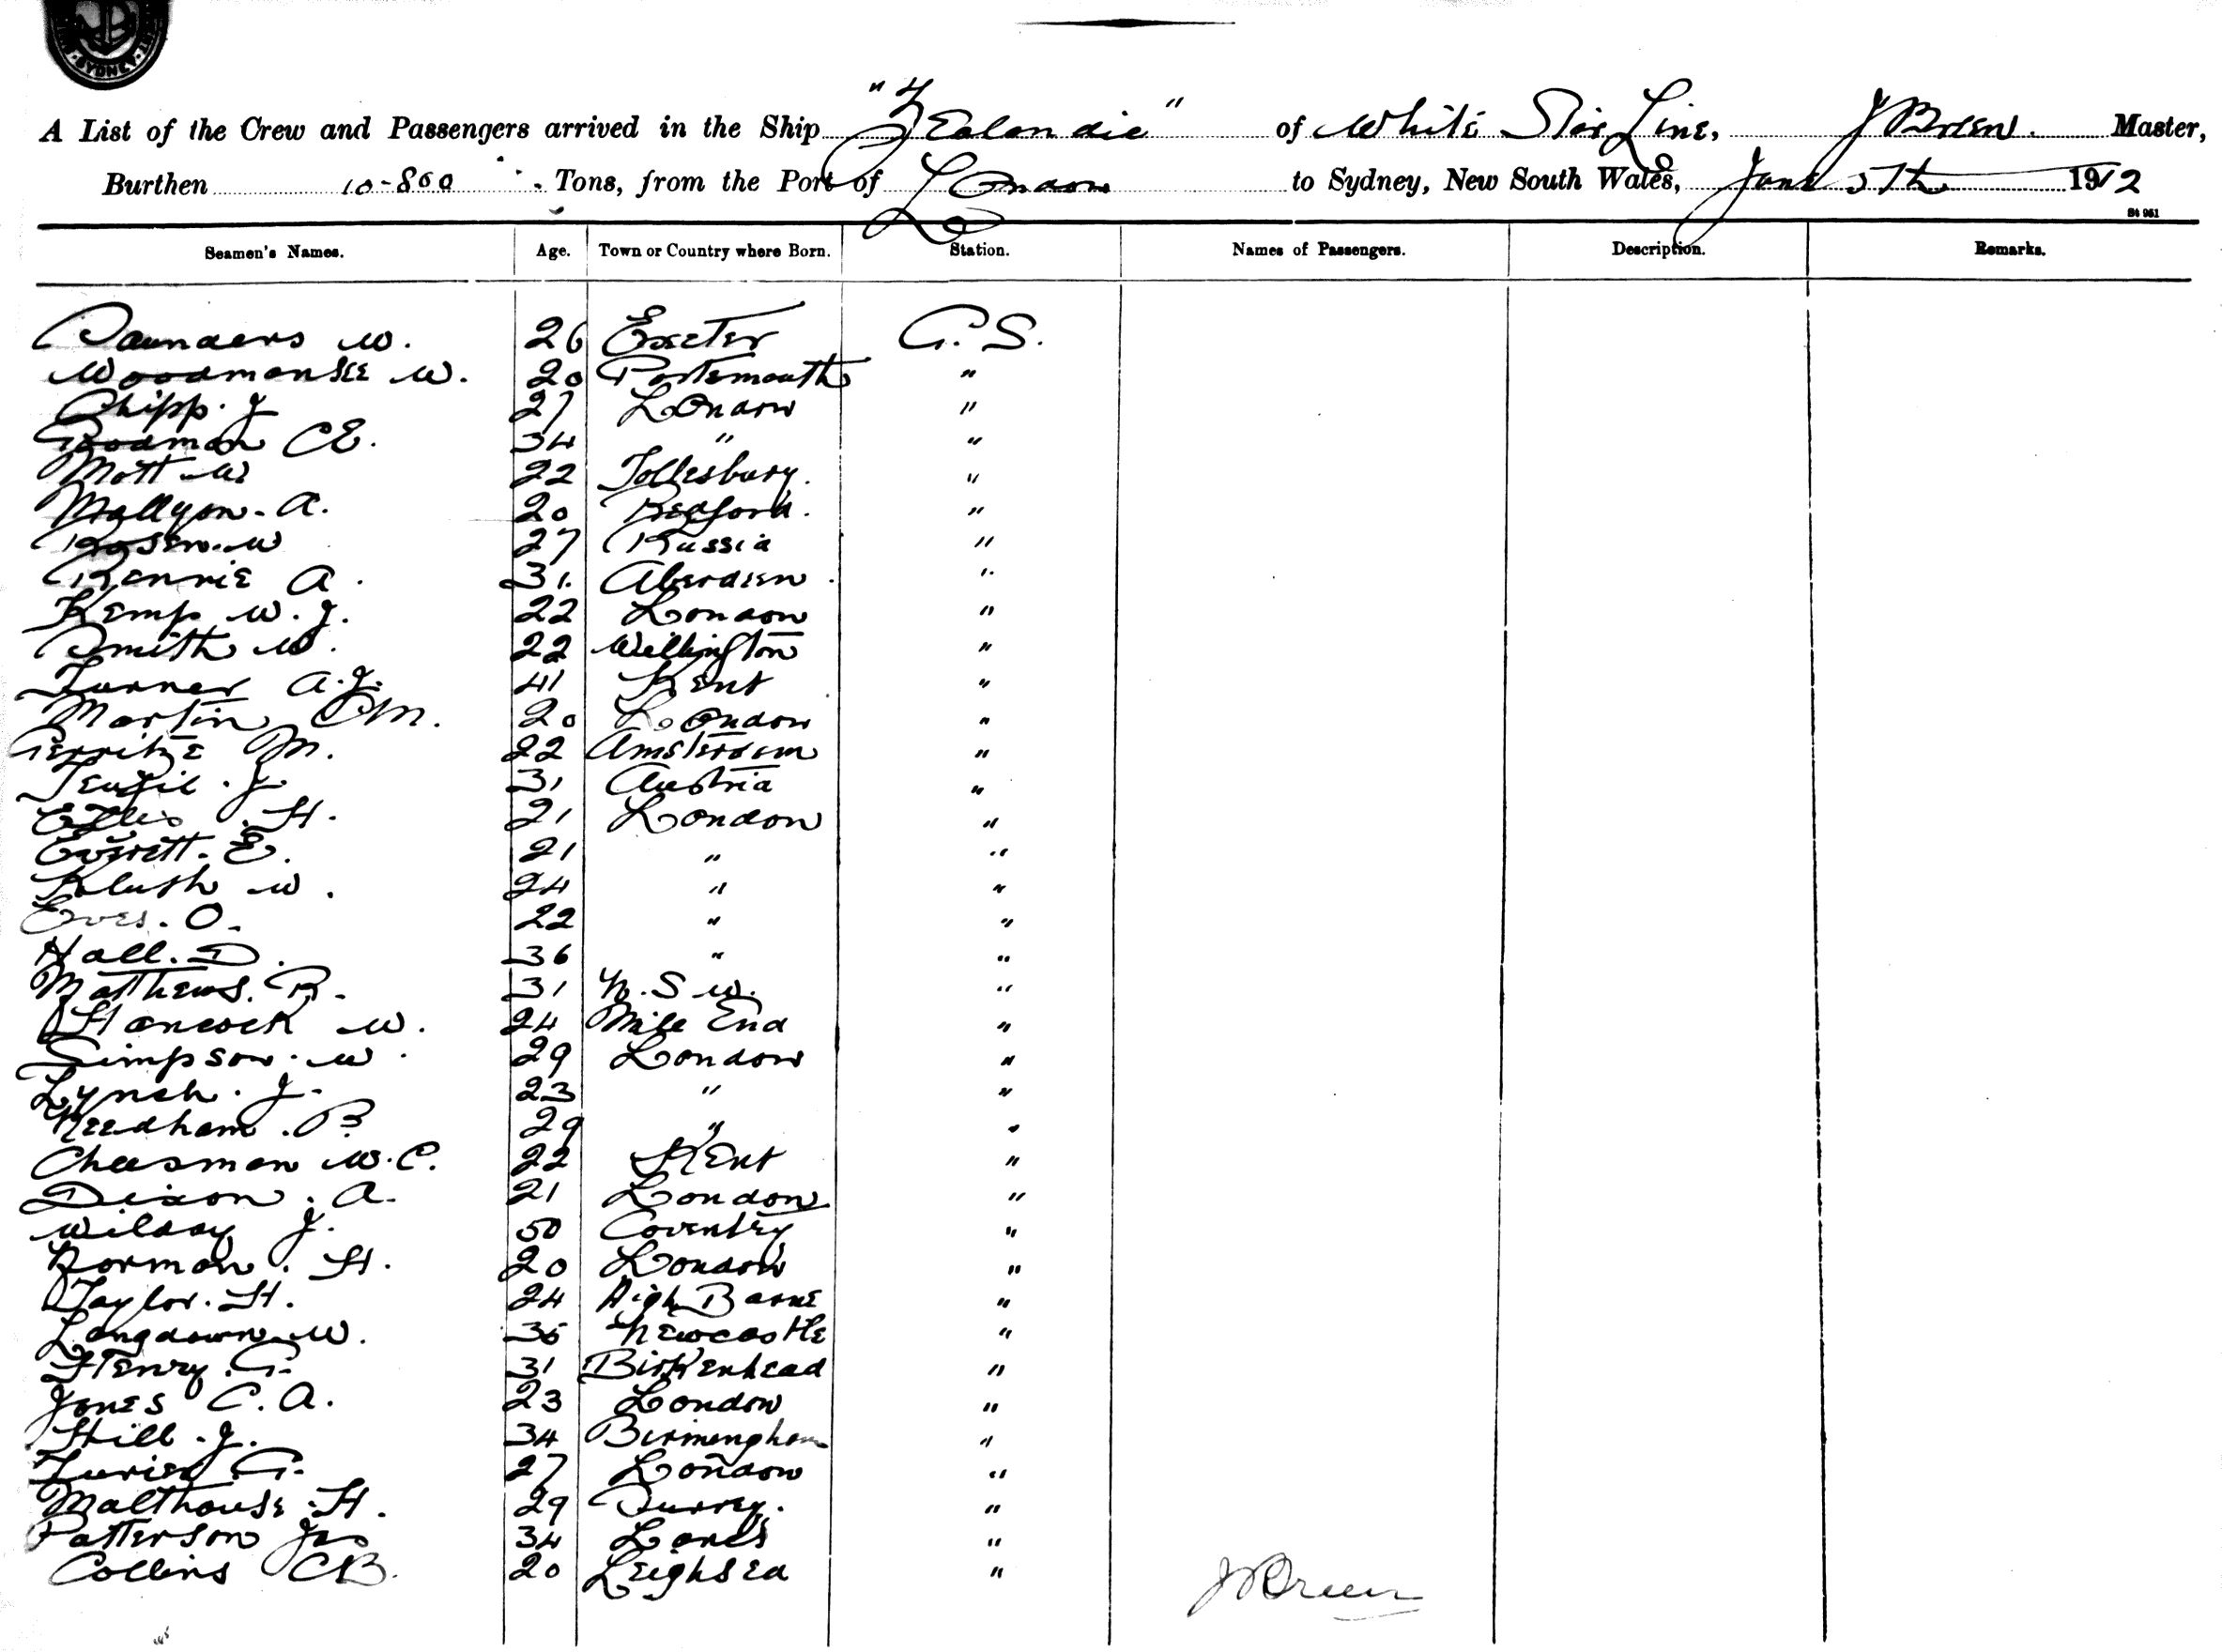 SYDNEY
A List of the Crew and Passengers arrived in the Ship "Zealandic" of White Star Line, J Breen. Master,
Burthen 10-860 Tons, from the Port of London to Sydney, New South Wales, June 5th 1912
St 961
Seamen's Names. Age. Town or Country where Born. Station. Names of Passengers. Description. Remarks.
Saunders W. 26 Exeter G.S.
Woodmansee W. 20 Portsmouth "
Chipp. J 27 London "
Goodman CE. 34 " "
Mott W 22 Tollesbury. "
Mallyon. A. 20 Bedford. "
Rosen. W 27 Russia "
Rennie A. 31. Aberdeen. "
Kemp W. J. 22 London "
Smith W. 22 Wellington "
Turner A. J. 41 Kent "
Martin CM. 20 London "
Gerritze M. 22 Amsterdam "
J. 31 Austria "
H. 21 London "
Everett. E. 21 " "
Klush W. 24 " "
Eves. O. 22 " "
Hall. D. 36 " "
Matthews. R. 31 N.S.W. "
Hancock W. 24 Mile End "
Simpson. W. 29 London "
Lynch. J. 23 " "
Needham. B 29 " "
Cheesman W. C. 22 Kent "
Dixon. A. 21 London "
Wilday J. 50 Coventry "
Norman. H. 20 London "
Taylor. H. 24 "
Langdown W. 35 Newcastle "
Henry. G. 31 Birkenhead "
Jones C. A. 23 London "
Hill. J. 34 Birmingham "
G. 27 London "
Malthouse. H. 29 Surrey. "
Patterson Jas 34 "
Collins CB. 20 Leighsea "
J Breen